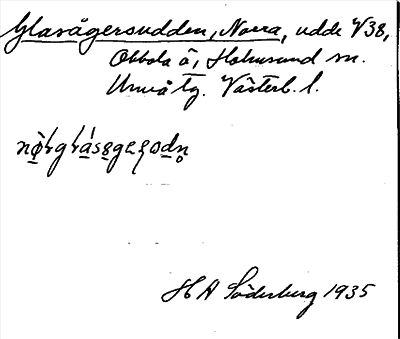 Glasägersudden, Norra, udde V38,
Obbola ä, Holmsund sn.
Umeå tg. Västerb. l.
H A Söderberg 1935